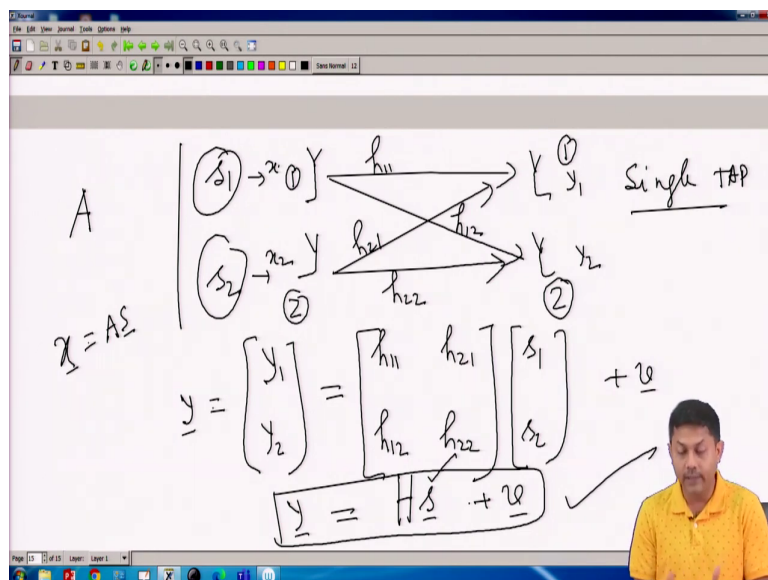 Xournal
File Edit View Journal Tools Options Help
Sans Normal 12
A
s1 → x1 ① h11 ① y1 Single TAP
h21 h12
s2 → x2 ② h22 y2 ②
x = AS
y = [y1 y2] = [h11 h21 h12 h22] [s1 s2] + v
y = H s + v
Page 15 of 15 Layer: Layer 1